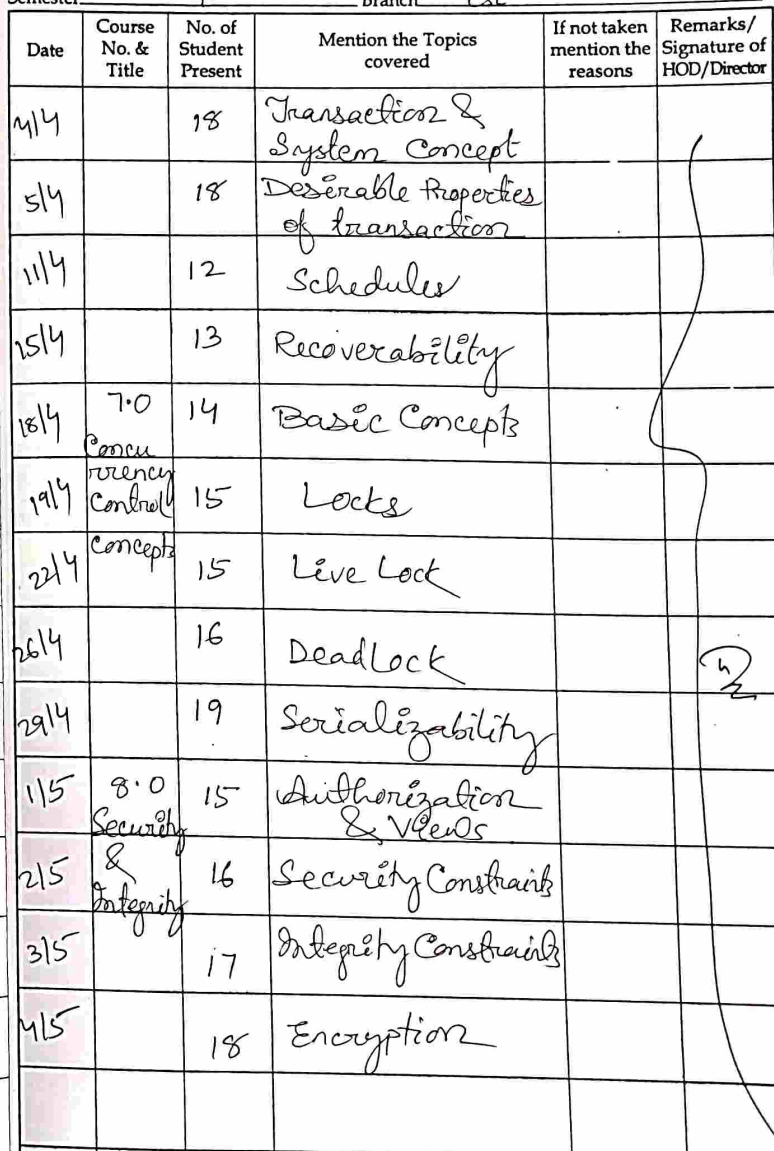 Semester Branch CSE
Date Course No. & Title No. of Student Present Mention the Topics covered If not taken mention the reasons Remarks/ Signature of HOD/Director
4/4 18 Transaction &
System Concept
5/4 18 Deserable Properties
of transaction
11/4 12 Schedules
15/4 13 Recoverability
18/4 7.0 14 Basic Concepts
Concu
rrency
19/4 Control 15 Locks
Concepts
22/4 15 Live Lock
26/4 16 DeadLock
29/4 19 Serializability
1/5 8.0 15 Authorization
Security & Views
2/5 & 16 Security Constraints
Integrity
3/5 17 Integrity Constraints
4/5 18 Encryption